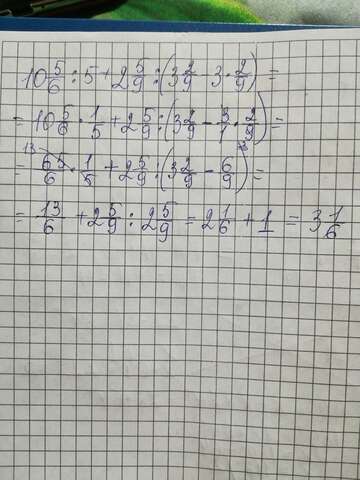 10 5/6 : 5 + 2 5/9 : (3 2/9 - 3 · 2/9) =
= 10 5/6 · 1/5 + 2 5/9 : (3 2/9 - 3/1 · 2/9) =
= 13 65/6 · 1/5 + 2 5/9 : (3 2/9 - 6/9) =
= 13/6 + 2 5/9 : 2 5/9 = 2 1/6 + 1 = 3 1/6